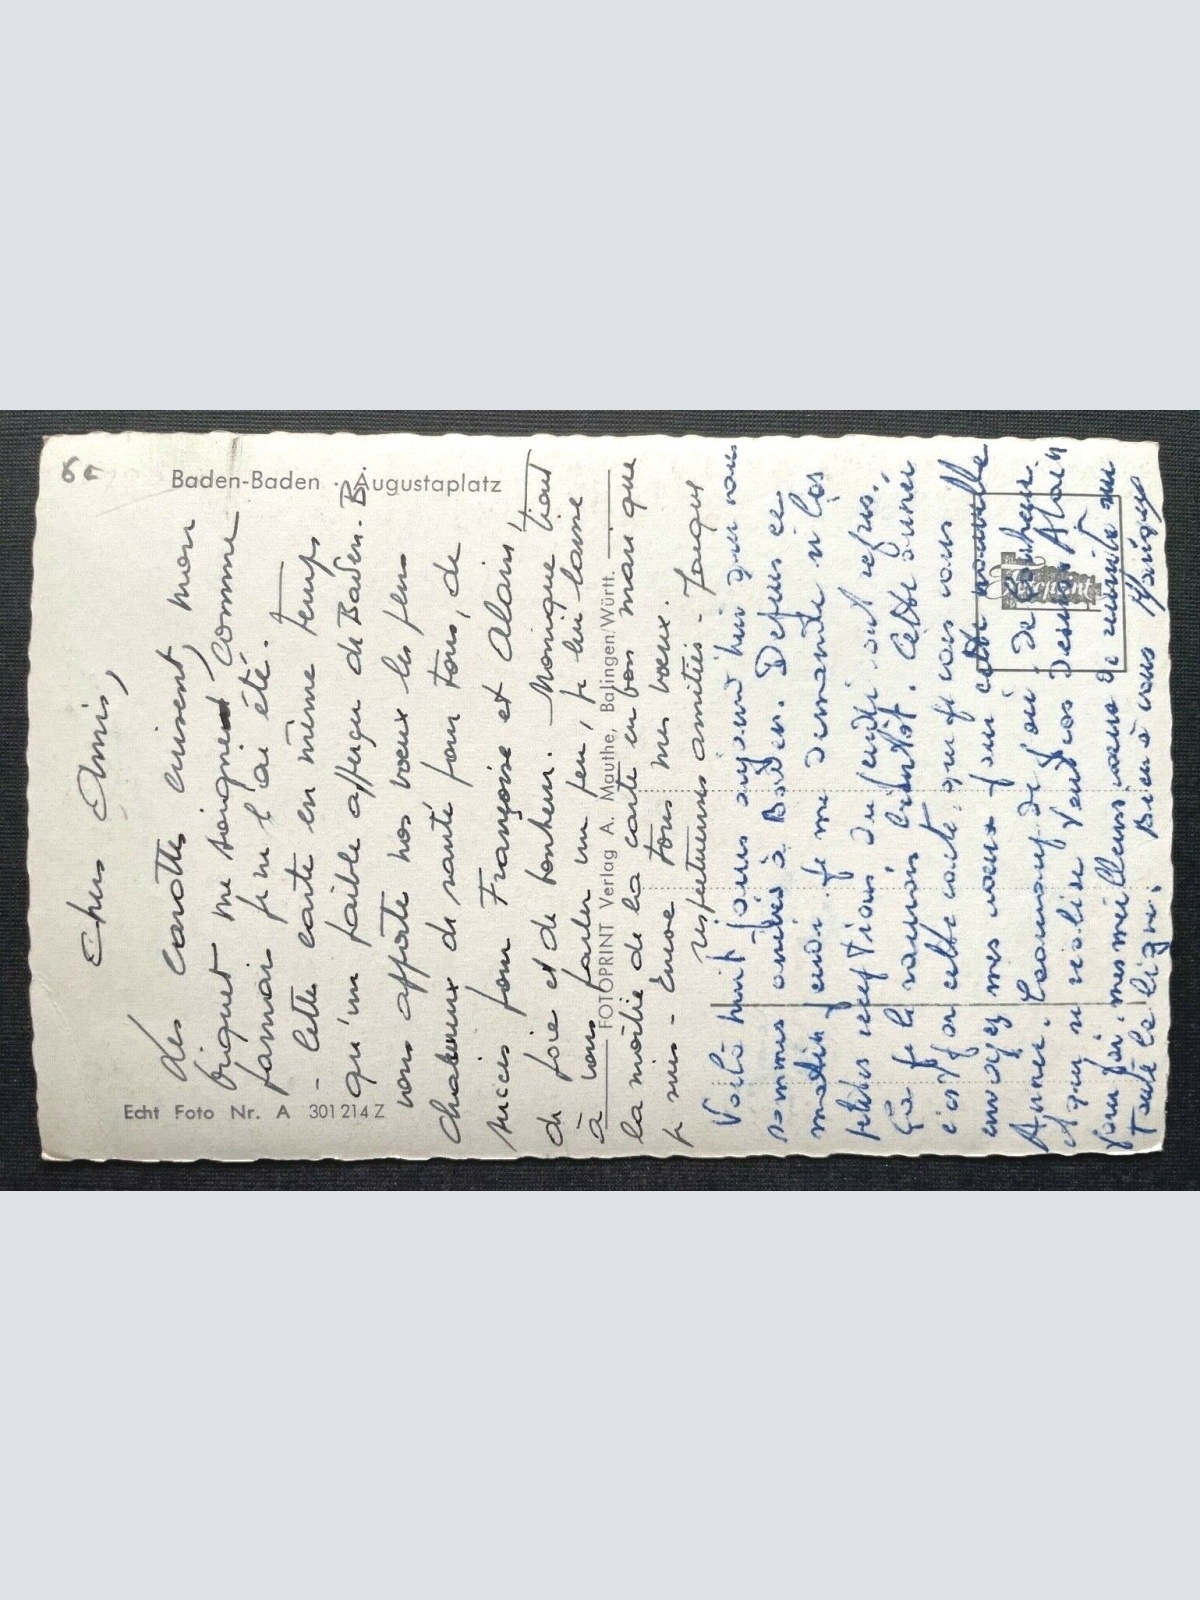 6c
Baden-Baden · Augustaplatz
Chers Amis,
des carottes cuisent, mon
biquet me soignent, comme
jamais je ne l'ai été.
- Cette carte en même temps
qu'un faible aperçu de Baden. B
vous apporte nos vœux les plus
chaleureux de santé pour tous, de
succès pour Françoise et Alain,
de joie et de bonheur. Monique tient
à vous parler un peu, je lui laisse
la moitié de la carte en bon mari que
je suis - Encore tous mes vœux.
respectueuses amitiés - Jacques
Echt Foto Nr. A 301214 Z
FOTOPRINT Verlag A. Mauthe, Balingen/Württ.
Voilà huit jours aujourd'hui que nous
sommes arrivés à Baden. Depuis ce
matin je me demande si les
petites réceptions du jeudi ont repris.
Ça je le saurai bientôt. Cette année
c'est par cette carte que je vous
envoie mes vœux pour cette nouvelle
Année. Beaucoup de joie, de bonheur
réalise vos désirs Alain
mes meilleurs vœux de réussite sur
toute la ligne. Bien à vous Monique